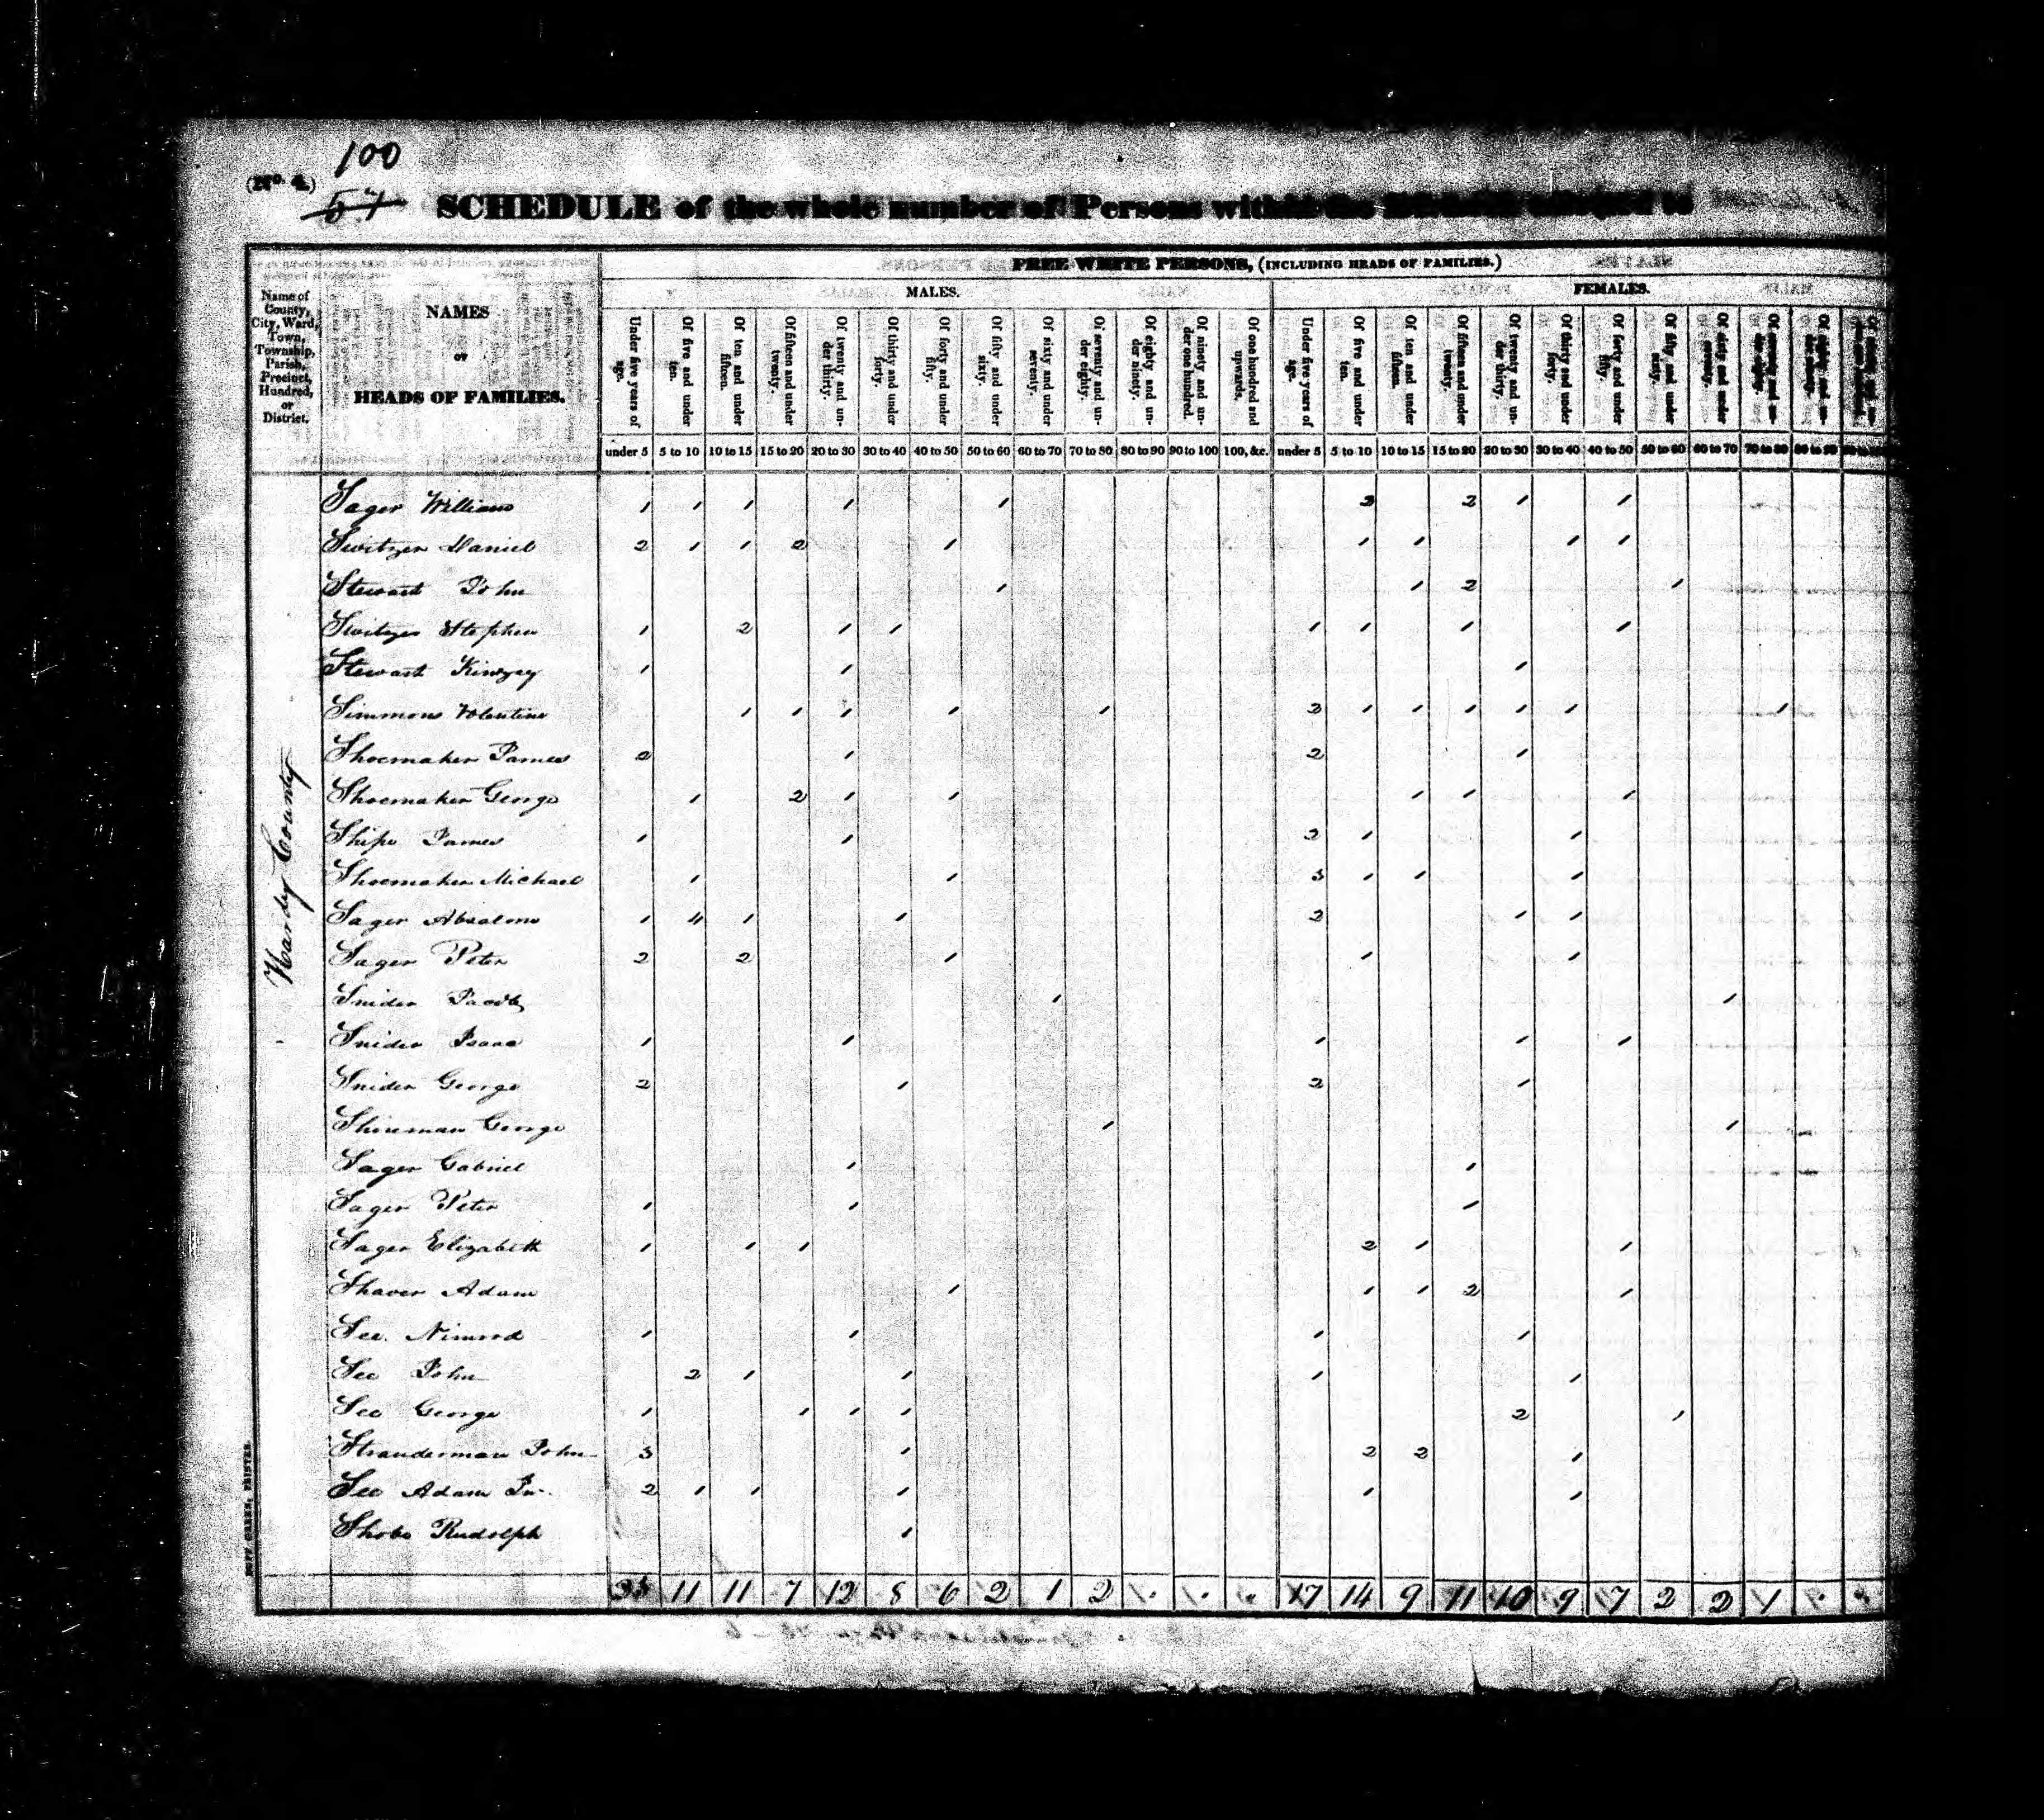 100
(No. 4.)
57
SCHEDULE of the whole number of Persons within the
FREE WHITE PERSONS, (INCLUDING HEADS OF FAMILIES.)
MALES. FEMALES.
Name of County, City, Ward, Town, Township, Parish, Precinct, Hundred, or District.
NAMES
OF
HEADS OF FAMILIES.
Under five years of age. Of five and under ten. Of ten and under fifteen. Of fifteen and under twenty. Of twenty and under thirty. Of thirty and under forty. Of forty and under fifty. Of fifty and under sixty. Of sixty and under seventy. Of seventy and under eighty. Of eighty and under ninety. Of ninety and under one hundred. Of one hundred and upwards. Under five years of age. Of five and under ten. Of ten and under fifteen. Of fifteen and under twenty. Of twenty and under thirty. Of thirty and under forty. Of forty and under fifty. Of fifty and under sixty. Of sixty and under seventy.
under 5 5 to 10 10 to 15 15 to 20 20 to 30 30 to 40 40 to 50 50 to 60 60 to 70 70 to 80 80 to 90 90 to 100 100, &c. under 5 5 to 10 10 to 15 15 to 20 20 to 30 30 to 40 40 to 50 50 to 60 60 to 70 70 to 80
Hardy County
Sager William 1 1 1 1 1 3 2 1 1
Switzer Daniel 2 1 1 2 1 1 1 1 1
Stewart John 1 1 2 1
Switzer Stephen 1 2 1 1 1 1 1 1
Stewart Kinzey 1 1 1
Simmons Volentine 1 1 1 1 1 2 1 1 1 1 1 1
Shoemaker James 2 1 2 1
Shoemaker George 1 2 1 1 1 1 1
Shipe James 1 1 2 1 1
Shoemaker Michael 1 1 3 1 1 1
Sager Absalom 1 4 1 1 2 1 1
Sager Peter 2 2 1 1 1
Snider Jacob 1 1
Snider Isaac 1 1 1 1 1
Snider George 2 1 2 1
Shireman George 1 1
Sager Gabriel 1 1
Sager Peter 1 1 1
Sager Elizabeth 1 1 1 2 1 1
Shaver Adam 1 1 1 2 1
See Nimrod 1 1 1 1
See John 2 1 1 1 1
See George 1 1 1 1 2 1
Strauderman John 3 1 2 2 1
See Adam Jr. 2 1 1 1 1 1
Shobe Rudolph 1
11 11 7 12 8 6 2 1 2 17 14 9 11 10 9 7 2 2 1
DUFF GREEN, PRINTER.